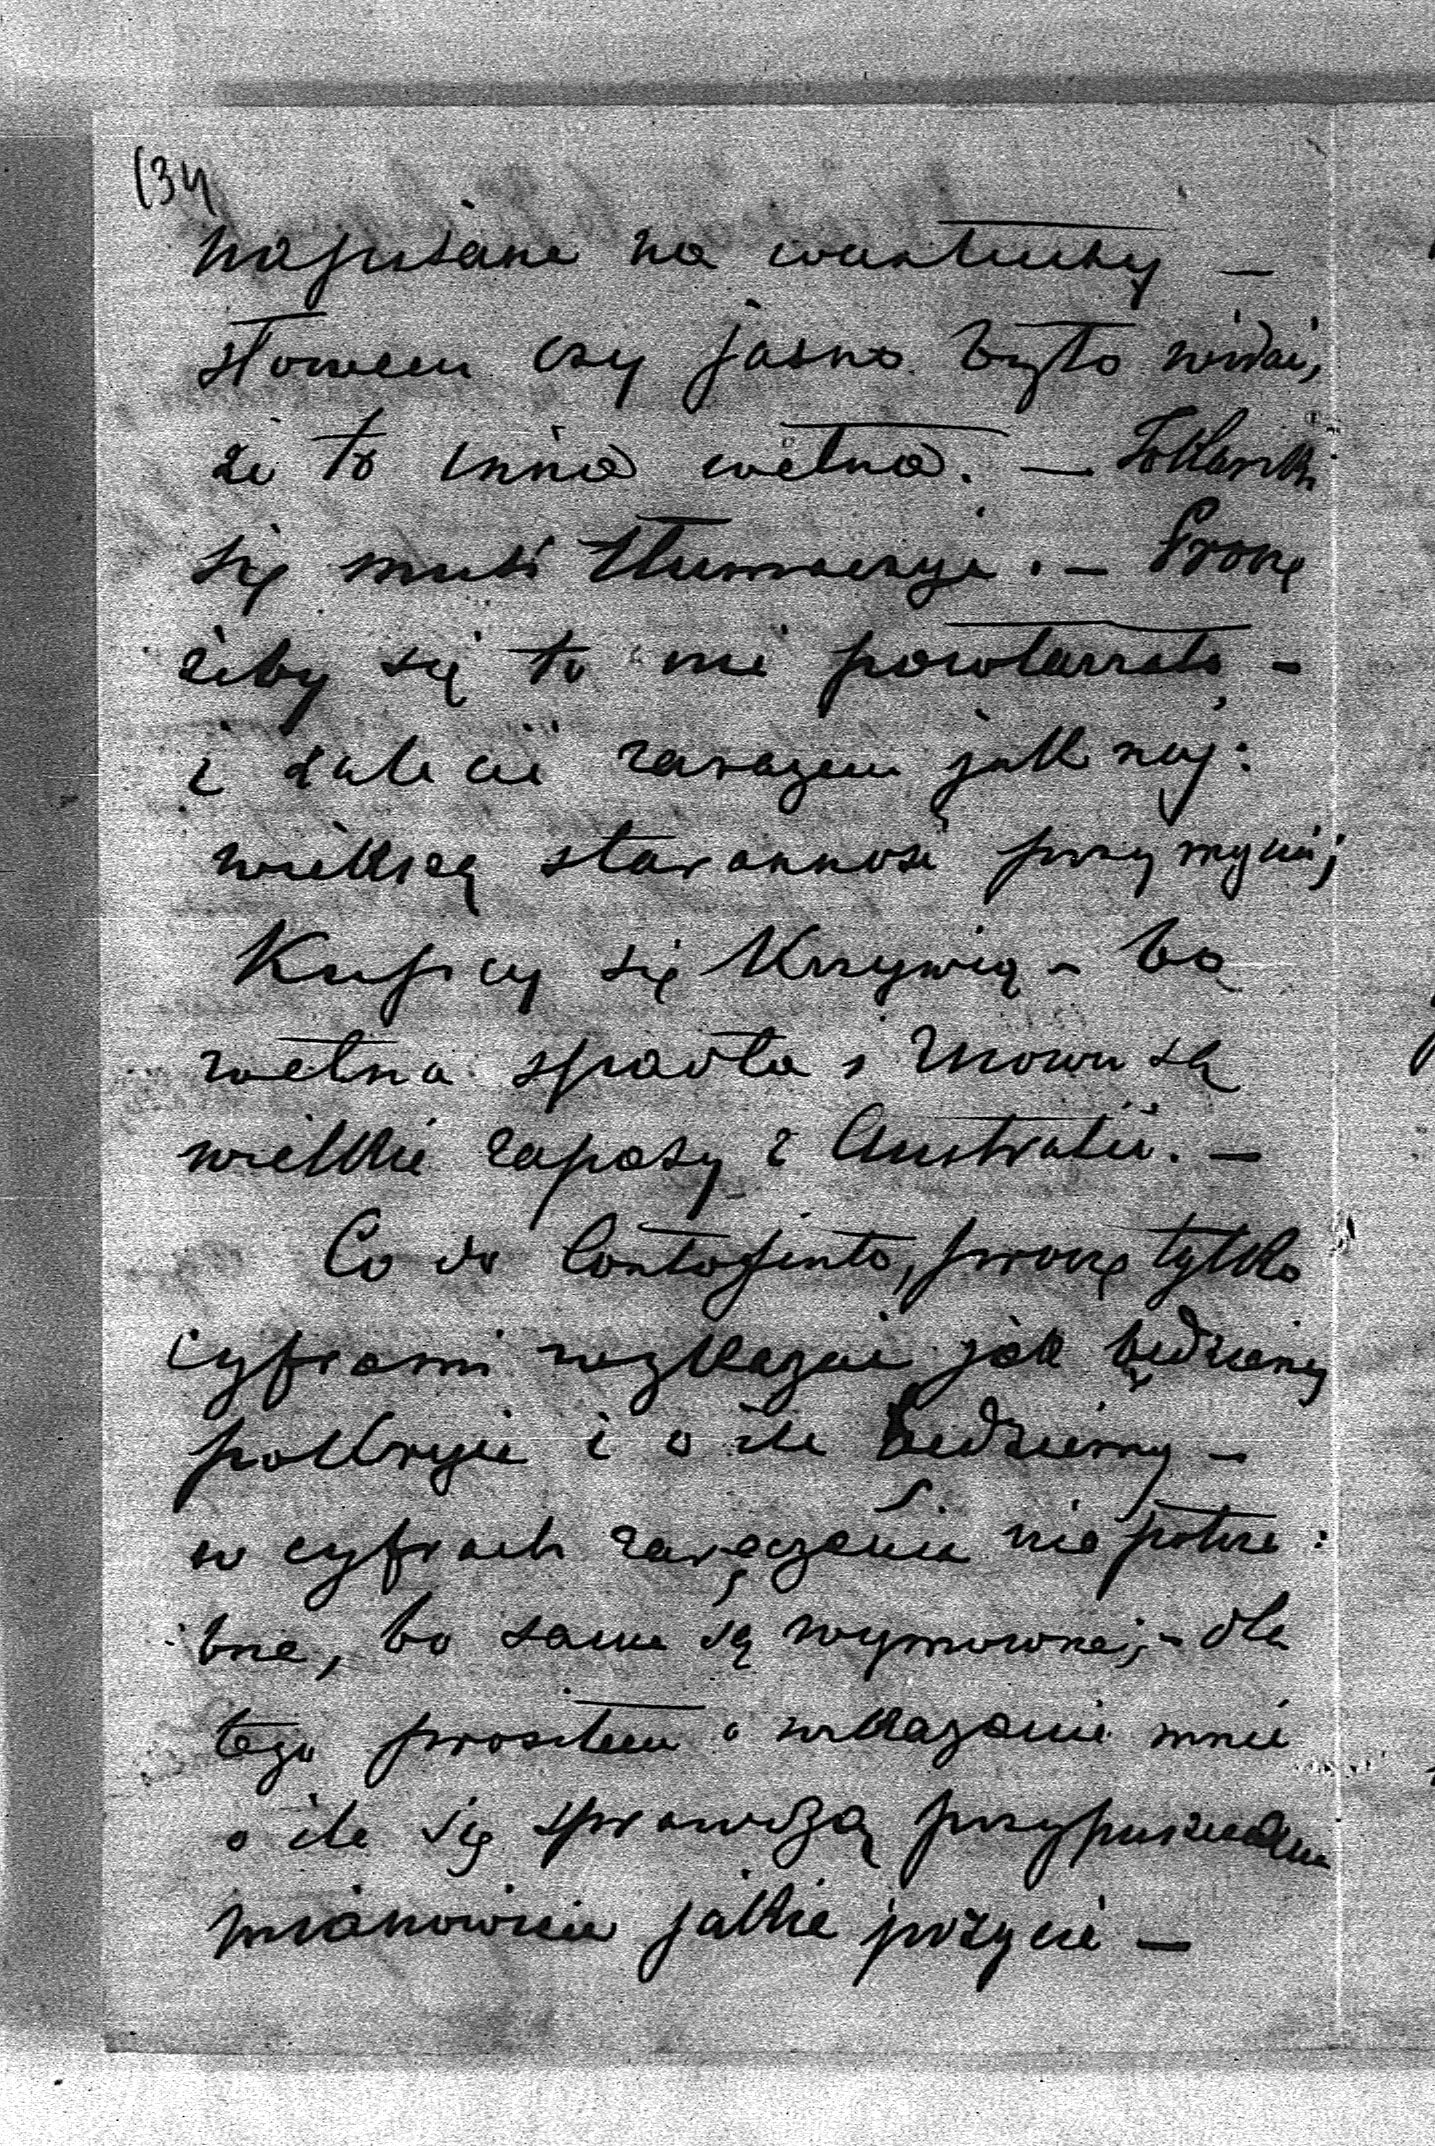 (34)
napisane na wantuchy —
słowem czy jasno było widać,
że to inna wełna. —
się musi tłumaczyć. — Proszę
żeby się to nie powtarzało, —
i zalecić zarazem jak naj:
większą staranność przy myciu;
Kupcy się krzywią — bo
wełna spadła i znowu są
wielkie zapasy z Australii. —
Co do Contogento, proszę tylko
cyframi wykazać jak będziemy
pokryci i o ile będziemy —
w cyfrach zaręczenia nie potrze:
bne, bo same są wymowne; — dla
tego prosiłem o wskazanie mnie
o ile się sprawdzą przypuszczenia
mianowicie jakie pozycie —